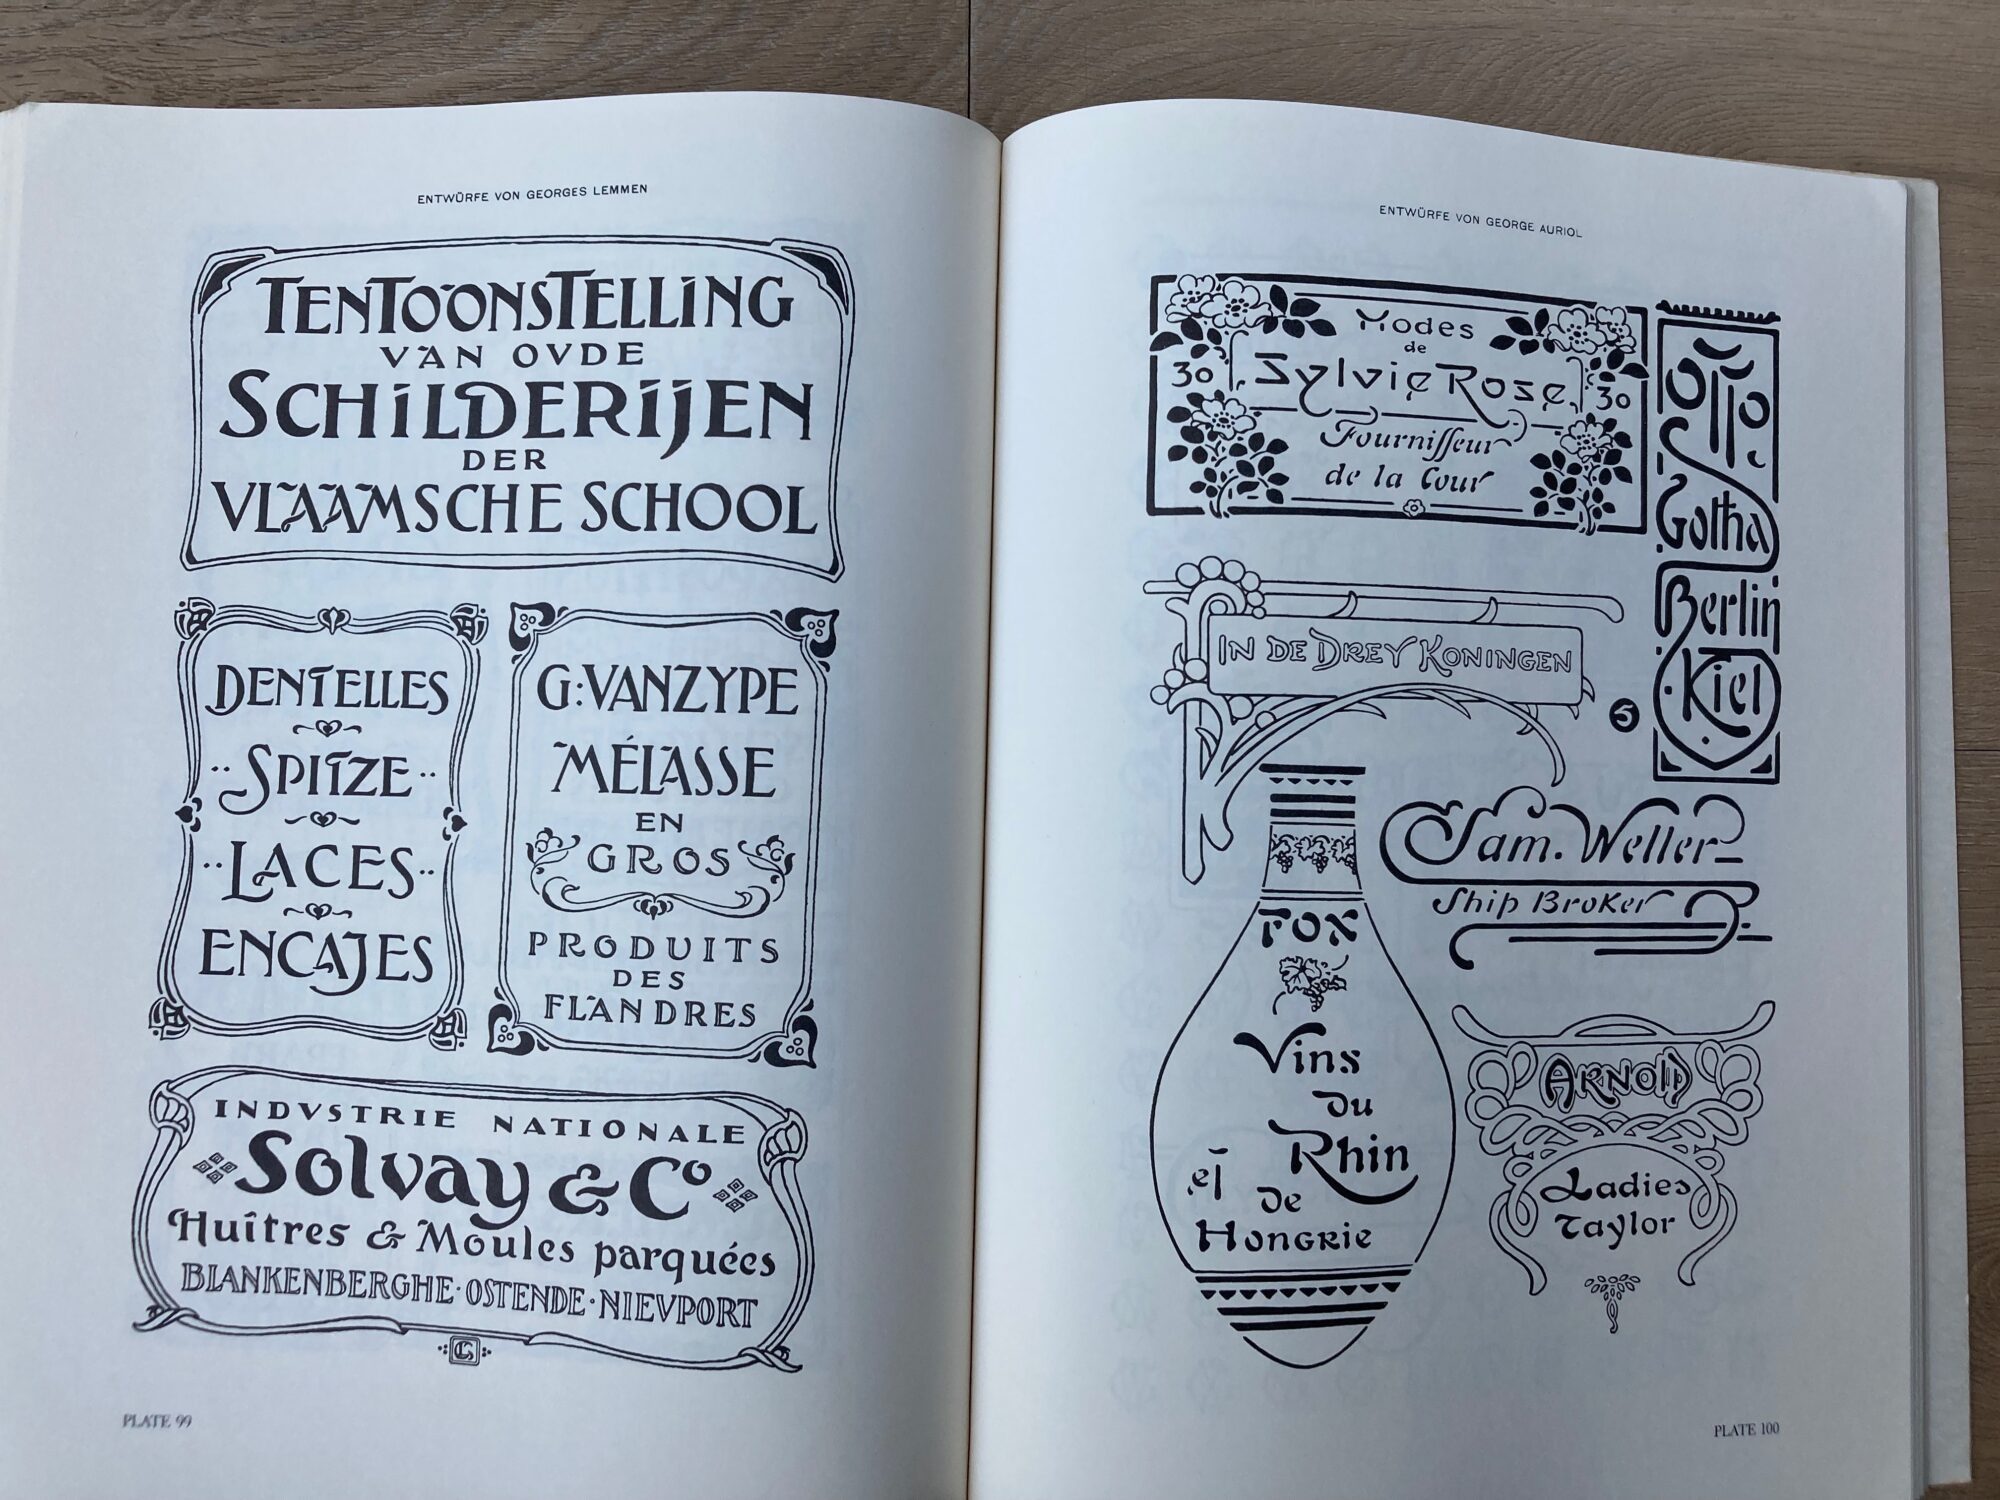 ENTWÜRFE VON GEORGES LEMMEN
TENTOONSTELLING
VAN OVDE
SCHILDERIJEN
DER
VLAAMSCHE SCHOOL
DENTELLES
SPITZE
LACES
ENCAJES
G: VANZYPE
MÉLASSE
EN
GROS
PRODUITS
DES
FLANDRES
INDVSTRIE NATIONALE
Solvay & Co
Huîtres & Moules parquées
BLANKENBERGHE · OSTENDE · NIEVPORT
GL
PLATE 99
ENTWÜRFE VON GEORGE AURIOL
Modes
de
30 Sylvie Rose 30
Fournisseur
de la Cour
OTTO
Gotha
Berlin
Kiel
IN DE DREY KONINGEN
Sam. Weller
Ship Broker
FOX
Vins
Du
Rhin
et
De
HONGRIE
ARNOLD
Ladies
Taylor
PLATE 100